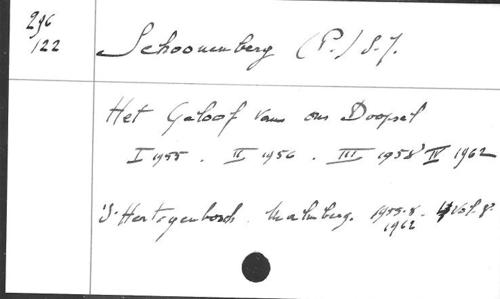 296
122
Schoonenberg (P.) S.J.
Het Geloof van ons Doopsel
I 1955 . II 1956 . III 1958 IV 1962
'S Hertogenbosch. Malmberg. 1955-8-
1962
4 Vol. 8°